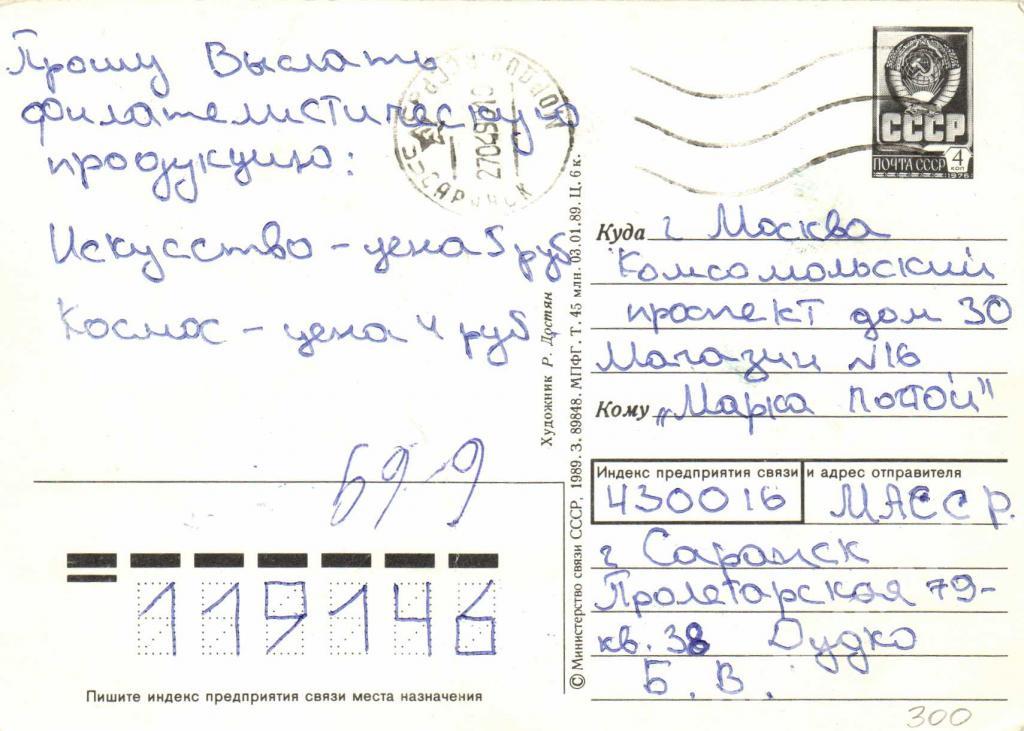 Прошу Выслать
филателистическую
продукцию:
Искусство – цена 5 руб
Космос – цена 4 руб
САРАНСК
СССР
ПОЧТА СССР 4 коп
1976
Куда г Москва
Комсомольский
проспект дом 30
Магазин N16
Кому „Марка почтой"
Индекс предприятия связи и адрес отправителя
430016 МАССР.
г Саранск
Пролетарская 79-
кв. 38 Дудко
Б. В.
119146
Пишите индекс предприятия связи места назначения
© Министерство связи СССР, 1989. З. 89848. МПФГ. Т. 45 млн. 03.01.89. Ц. 6 к.
Художник Р. Достян
300